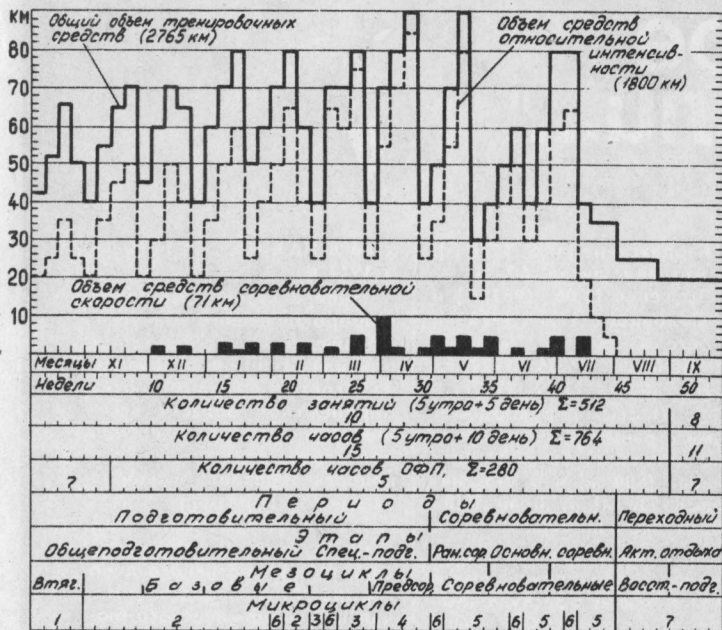 КМ
Общий объем тренировочных
средств (2765 км)
Объем средств
относительной
интенсив-
ности
(1800 км)
80
70
60
50
40
30
20
10
Объем средств соревновательной
скорости (71 км)
Месяцы XI XII I II III IV V VI VII VIII IX
Недели 10 15 20 25 30 35 40 45 50
Количество занятий (5 утро + 5 день) Σ=512
10 8
Количество часов (5 утро + 10 день) Σ=764
15 11
Количество часов ОФП, Σ=280
7 5 7
Периоды
Подготовительный Соревновательн. Переходный
Этапы
Общеподготовительный Спец.-подг. Ран.сор. Основн. соревн. Акт. отдыха
Мезоциклы
Втяг. Базовые Предсор. Соревновательные Восст.-подг.
Микроциклы
1 2 6 2 3 6 3 4 6 5 6 5 6 5 7